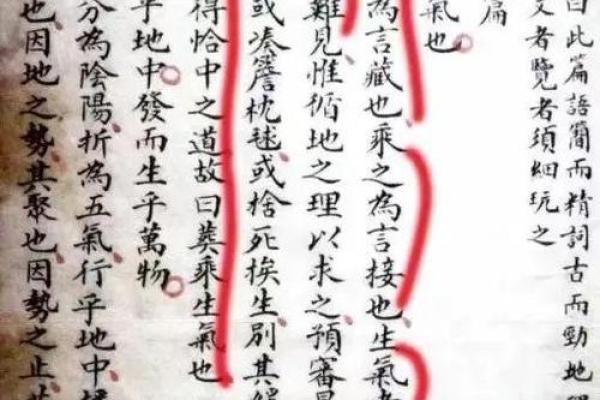 曰此篇語簡而精詞古而勁地理
文者覽者須細玩之
篇
氣也
為言藏也乘之為言接也生氣者
難見惟循地之理以求之預審
或湊簷枕毬或捨死挨生別其
得恰中之道故曰葬乘生氣也
乎地中發而生乎萬物
分為陰陽折為五氣行乎地中
也因地之勢其聚也因勢之止